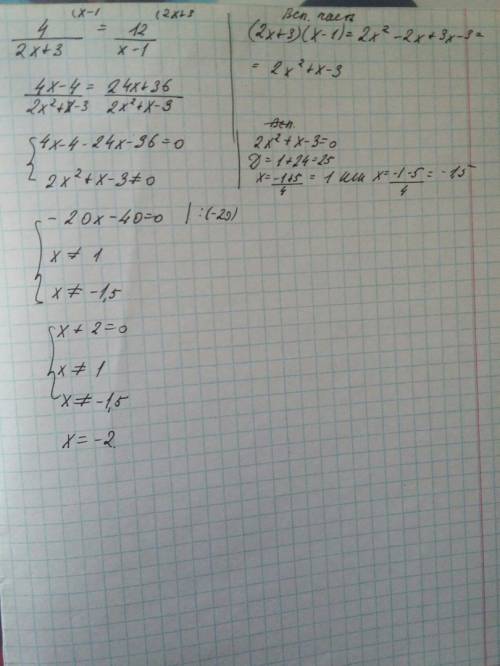 4/(2x+3) (x-1 = 12/(x-1) (2x+3
(4x-4)/(2x²+x-3) = (24x+36)/(2x²+x-3)
{ 4x-4-24x-36=0
2x²+x-3≠0
{ -20x-40=0 |:(-20)
x≠1
x≠-1,5
{ x+2=0
x≠1
x≠-1,5
x=-2
Всп. часть
(2x+3)(x-1)=2x²-2x+3x-3=
=2x²+x-3
Всп.
2x²+x-3=0
D=1+24=25
x=(-1+5)/4=1 или x=(-1-5)/4=-1,5